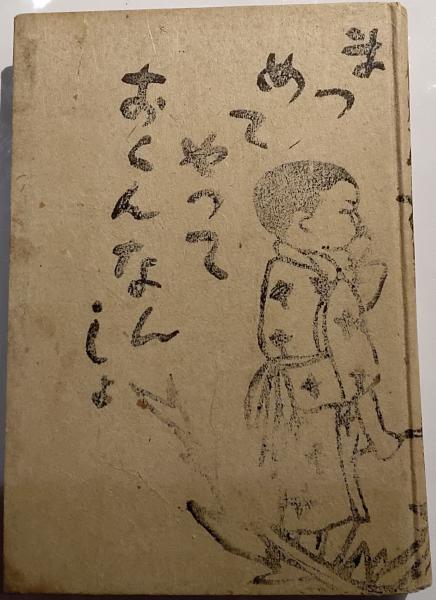 まつめて
やつて
おくんなんしよ